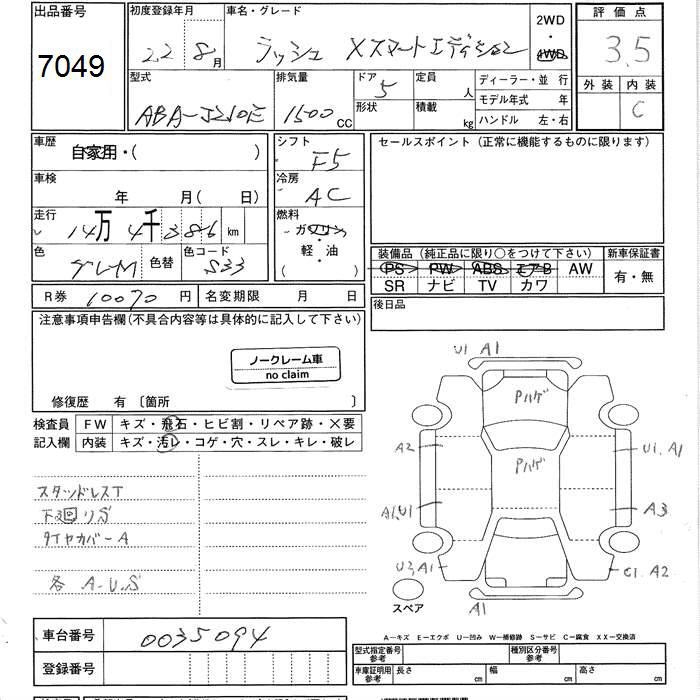 出品番号 7049
初度登録年月 22 8月
車名・グレード ラッシュ Xスマートエディション
2WD ・ 4WD
評価点 3.5
外装 内装 C
型式 ABA-J210E
排気量 1500 CC
ドア 5
形状
定員 人
積載 kg
ディーラー・並 行
モデル年式 年
ハンドル 左・右
車歴 自家用・( )
シフト F5
セールスポイント (正常に機能するものに限ります)
車検 年 月( 日)
冷房 AC
走行 14万 4千 386 km
燃料 ガソリン 軽・油 ( )
色 グレーM 色替
色コード S33
装備品 (純正品に限り○をつけて下さい) 新車保証書
PS PW ABS エアB AW 有・無
SR ナビ TV カワ
R券 10070 円 名変期限 月 日
後日品
注意事項申告欄(不具合内容等は具体的に記入して下さい)
ノークレーム車
no claim
修復歴 有 〔箇所 〕
検査員 FW キズ・飛石・ヒビ割・リペア跡・X要
記入欄 内装 キズ・汚レ・コゲ・穴・スレ・キレ・破レ
スタッドレスT
下廻りS
タイヤカバーA
各 A.U.S
U1 A1
Pハゲ
A2
U1. A1
Pハゲ
A1.U1
A3
U3, A1
C1 A2
スペア
A1
A−キズ E−エクボ U−凹み W−補修跡 S−サビ C−腐食 XX−交換済
車台番号 0035094
登録番号
型式指定番号 参考 種別区分番号 参考
車庫証明用 参考 長さ cm 幅 cm 高さ cm